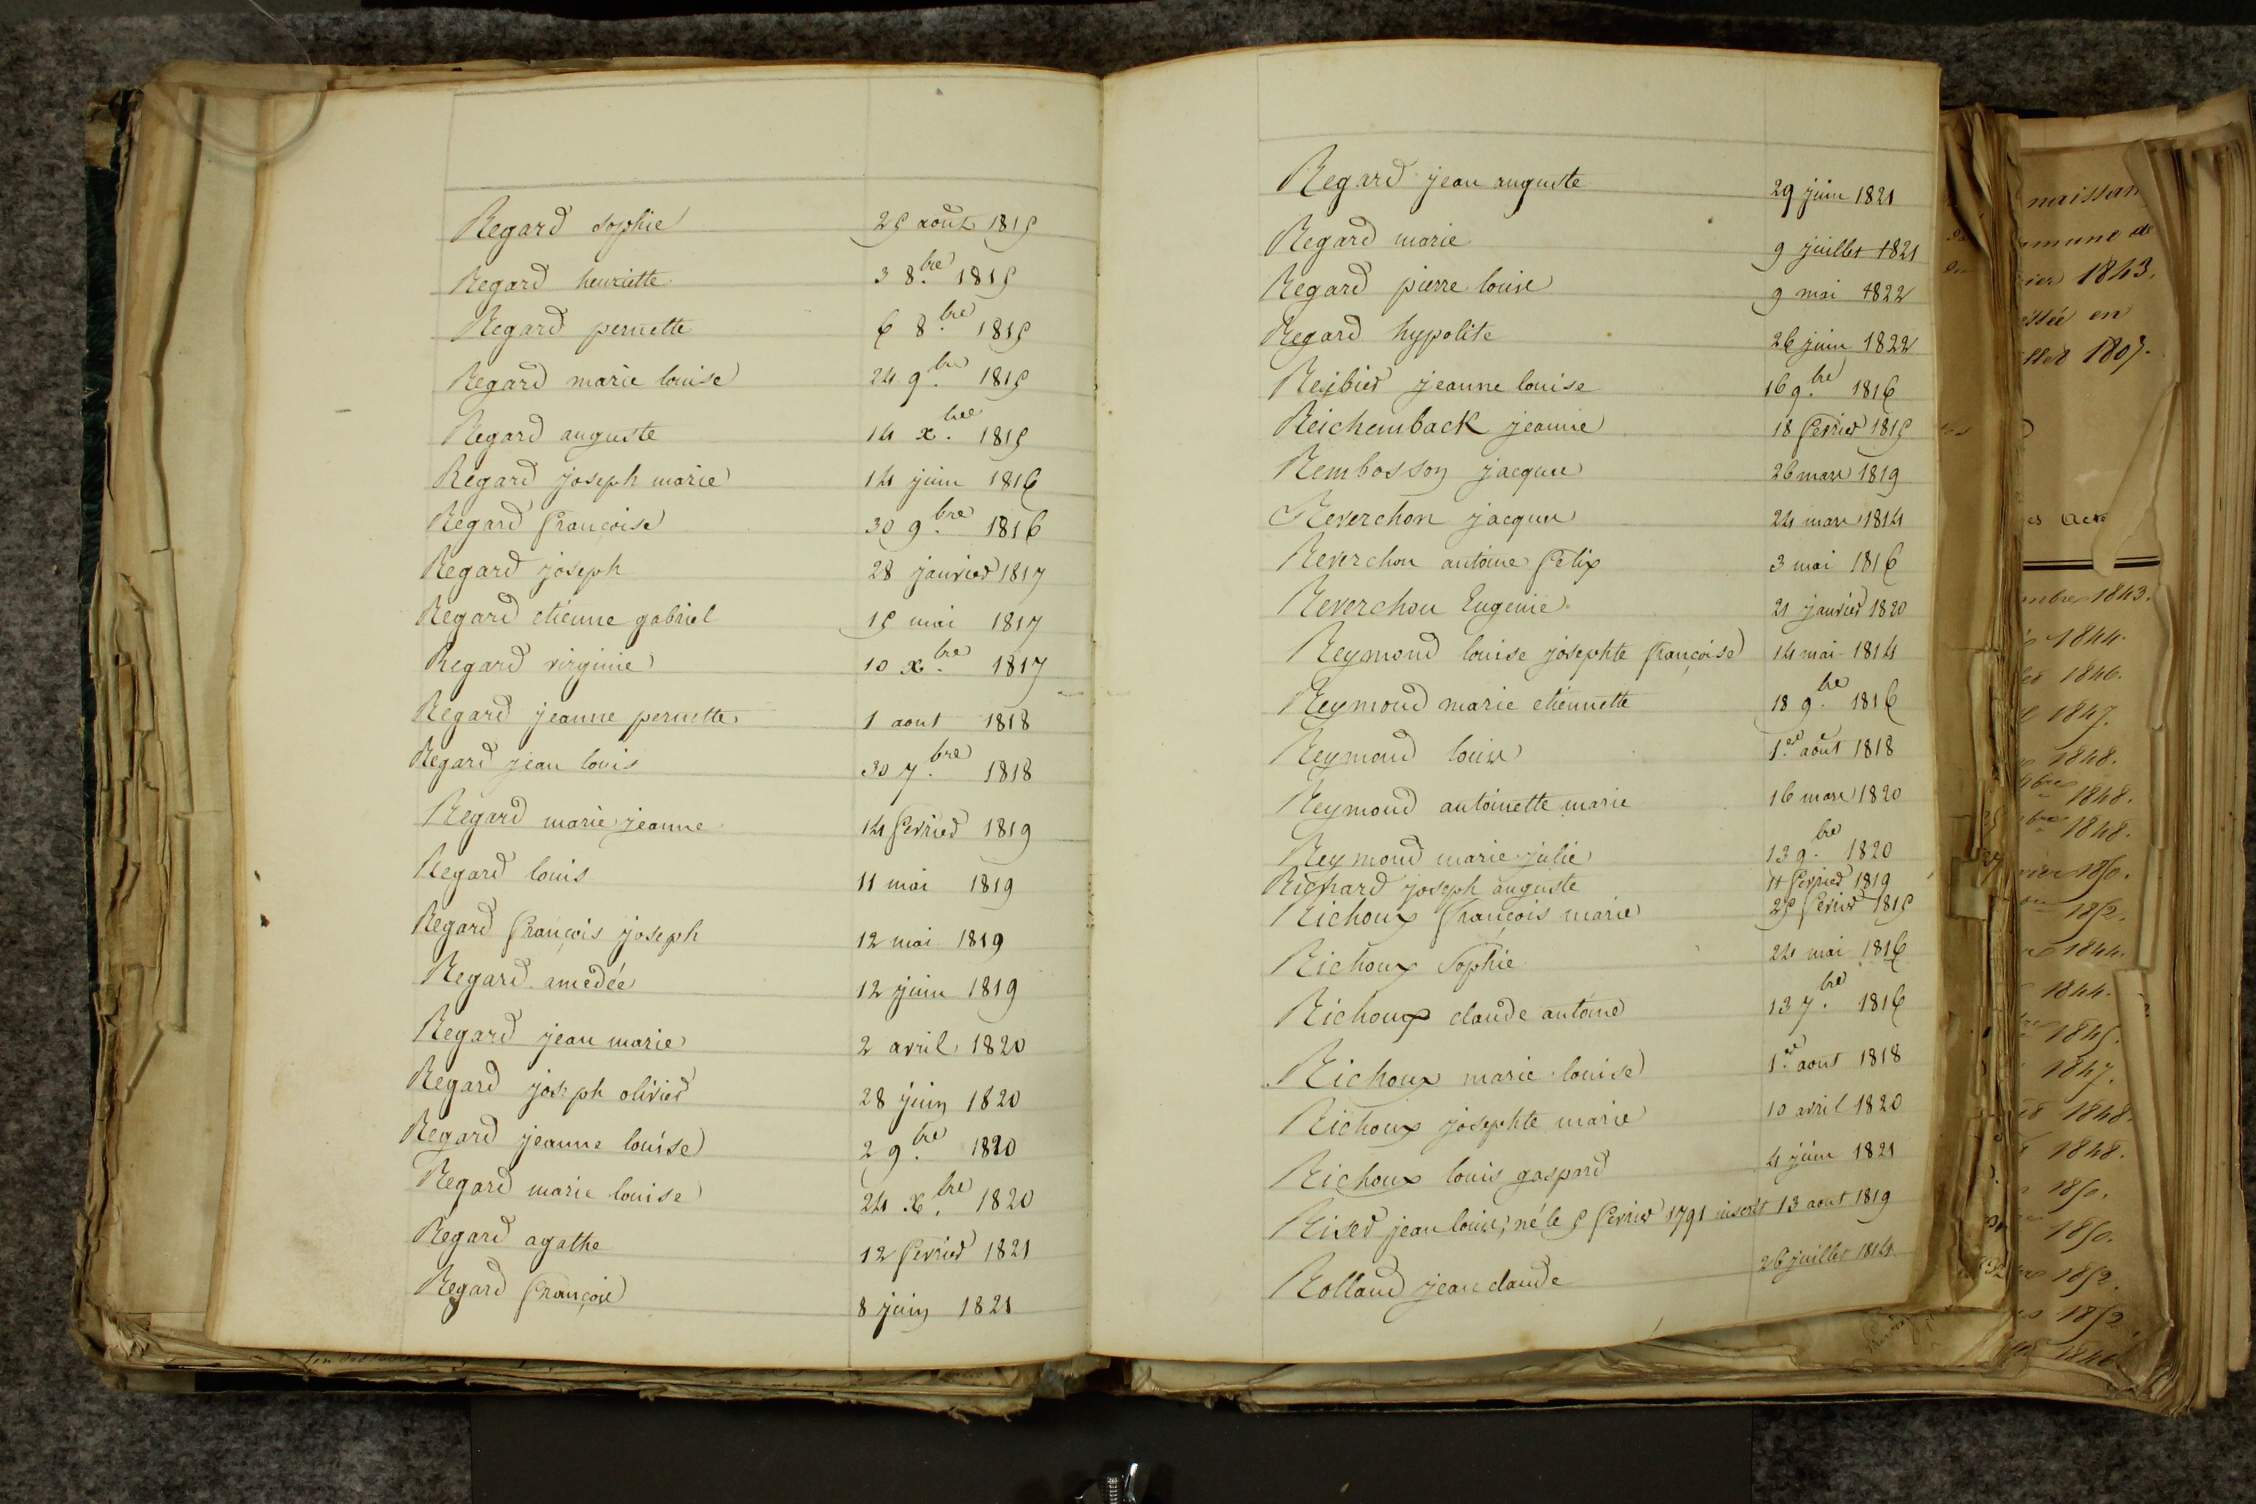 Regard sophie 25 août 1815
Regard henriette 3 8.bre 1815
Regard pernette 6 8.bre 1815
Regard marie louise 24 9.bre 1815
Regard auguste 14 x.bre 1815
Regard joseph marie 14 juin 1816
Regard françoise 30 9.bre 1816
Regard joseph 28 janvier 1817
Regard etienne gabriel 15 mai 1817
Regard virginie 10 x.bre 1817
Regard jeanne pernette 1 aout 1818
Regard jean louis 30 7.bre 1818
Regard marie jeanne 14 fevrier 1819
Regard louis 11 mai 1819
Regard françois joseph 12 mai 1819
Regard amedée 12 juin 1819
Regard jean marie 2 avril 1820
Regard joseph olivier 28 juin 1820
Regard jeanne louise 2 9.bre 1820
Regard marie louise 24 x.bre 1820
Regard agathe 12 fevrier 1821
Regard françois 8 juin 1821
Regard jean auguste 29 juin 1821
Regard marie 9 juillet 1821
Regard pierre louis 9 mai 1822
Regard hypolite 26 juin 1822
jeanne louise 16 9.bre 1816
Reichemback jeanne 18 fevrier 1815
Rembosson jacques 26 mars 1819
Reverchon jacques 24 mars 1814
Reverchon antoine felix 3 mai 1816
Reverchon Eugenie 21 janvier 1820
Reymond louise josephte françoise 14 mai 1814
Reymond marie etiennette 18 9.bre 1816
Reymond louis 1.er août 1818
Reymond antoinette marie 16 mars 1820
Reymond marie julie 13 9.bre 1820
Richard joseph auguste 11 fevrier 1819
Richoux françois marie 25 fevrier 1815
Richoux Sophie 24 mai 1816
Richoux claude antoine 13 7.bre 1816
Richoux marie louise 1.er aout 1818
Richoux josephte marie 10 avril 1820
Richoux louis gaspard 4 juin 1821
Riser jean louis, né le 5 fevrier 1791 inscrit 13 aout 1819
Rolland jean claude 26 juillet 1814
1843.
en
1807.
1843.
1844.
1846.
1847.
1848.
1848.
1848.
1850.
1852.
1844.
1844.
1845.
1847.
1848.
1848.
1850.
1850.
1852.
1852.